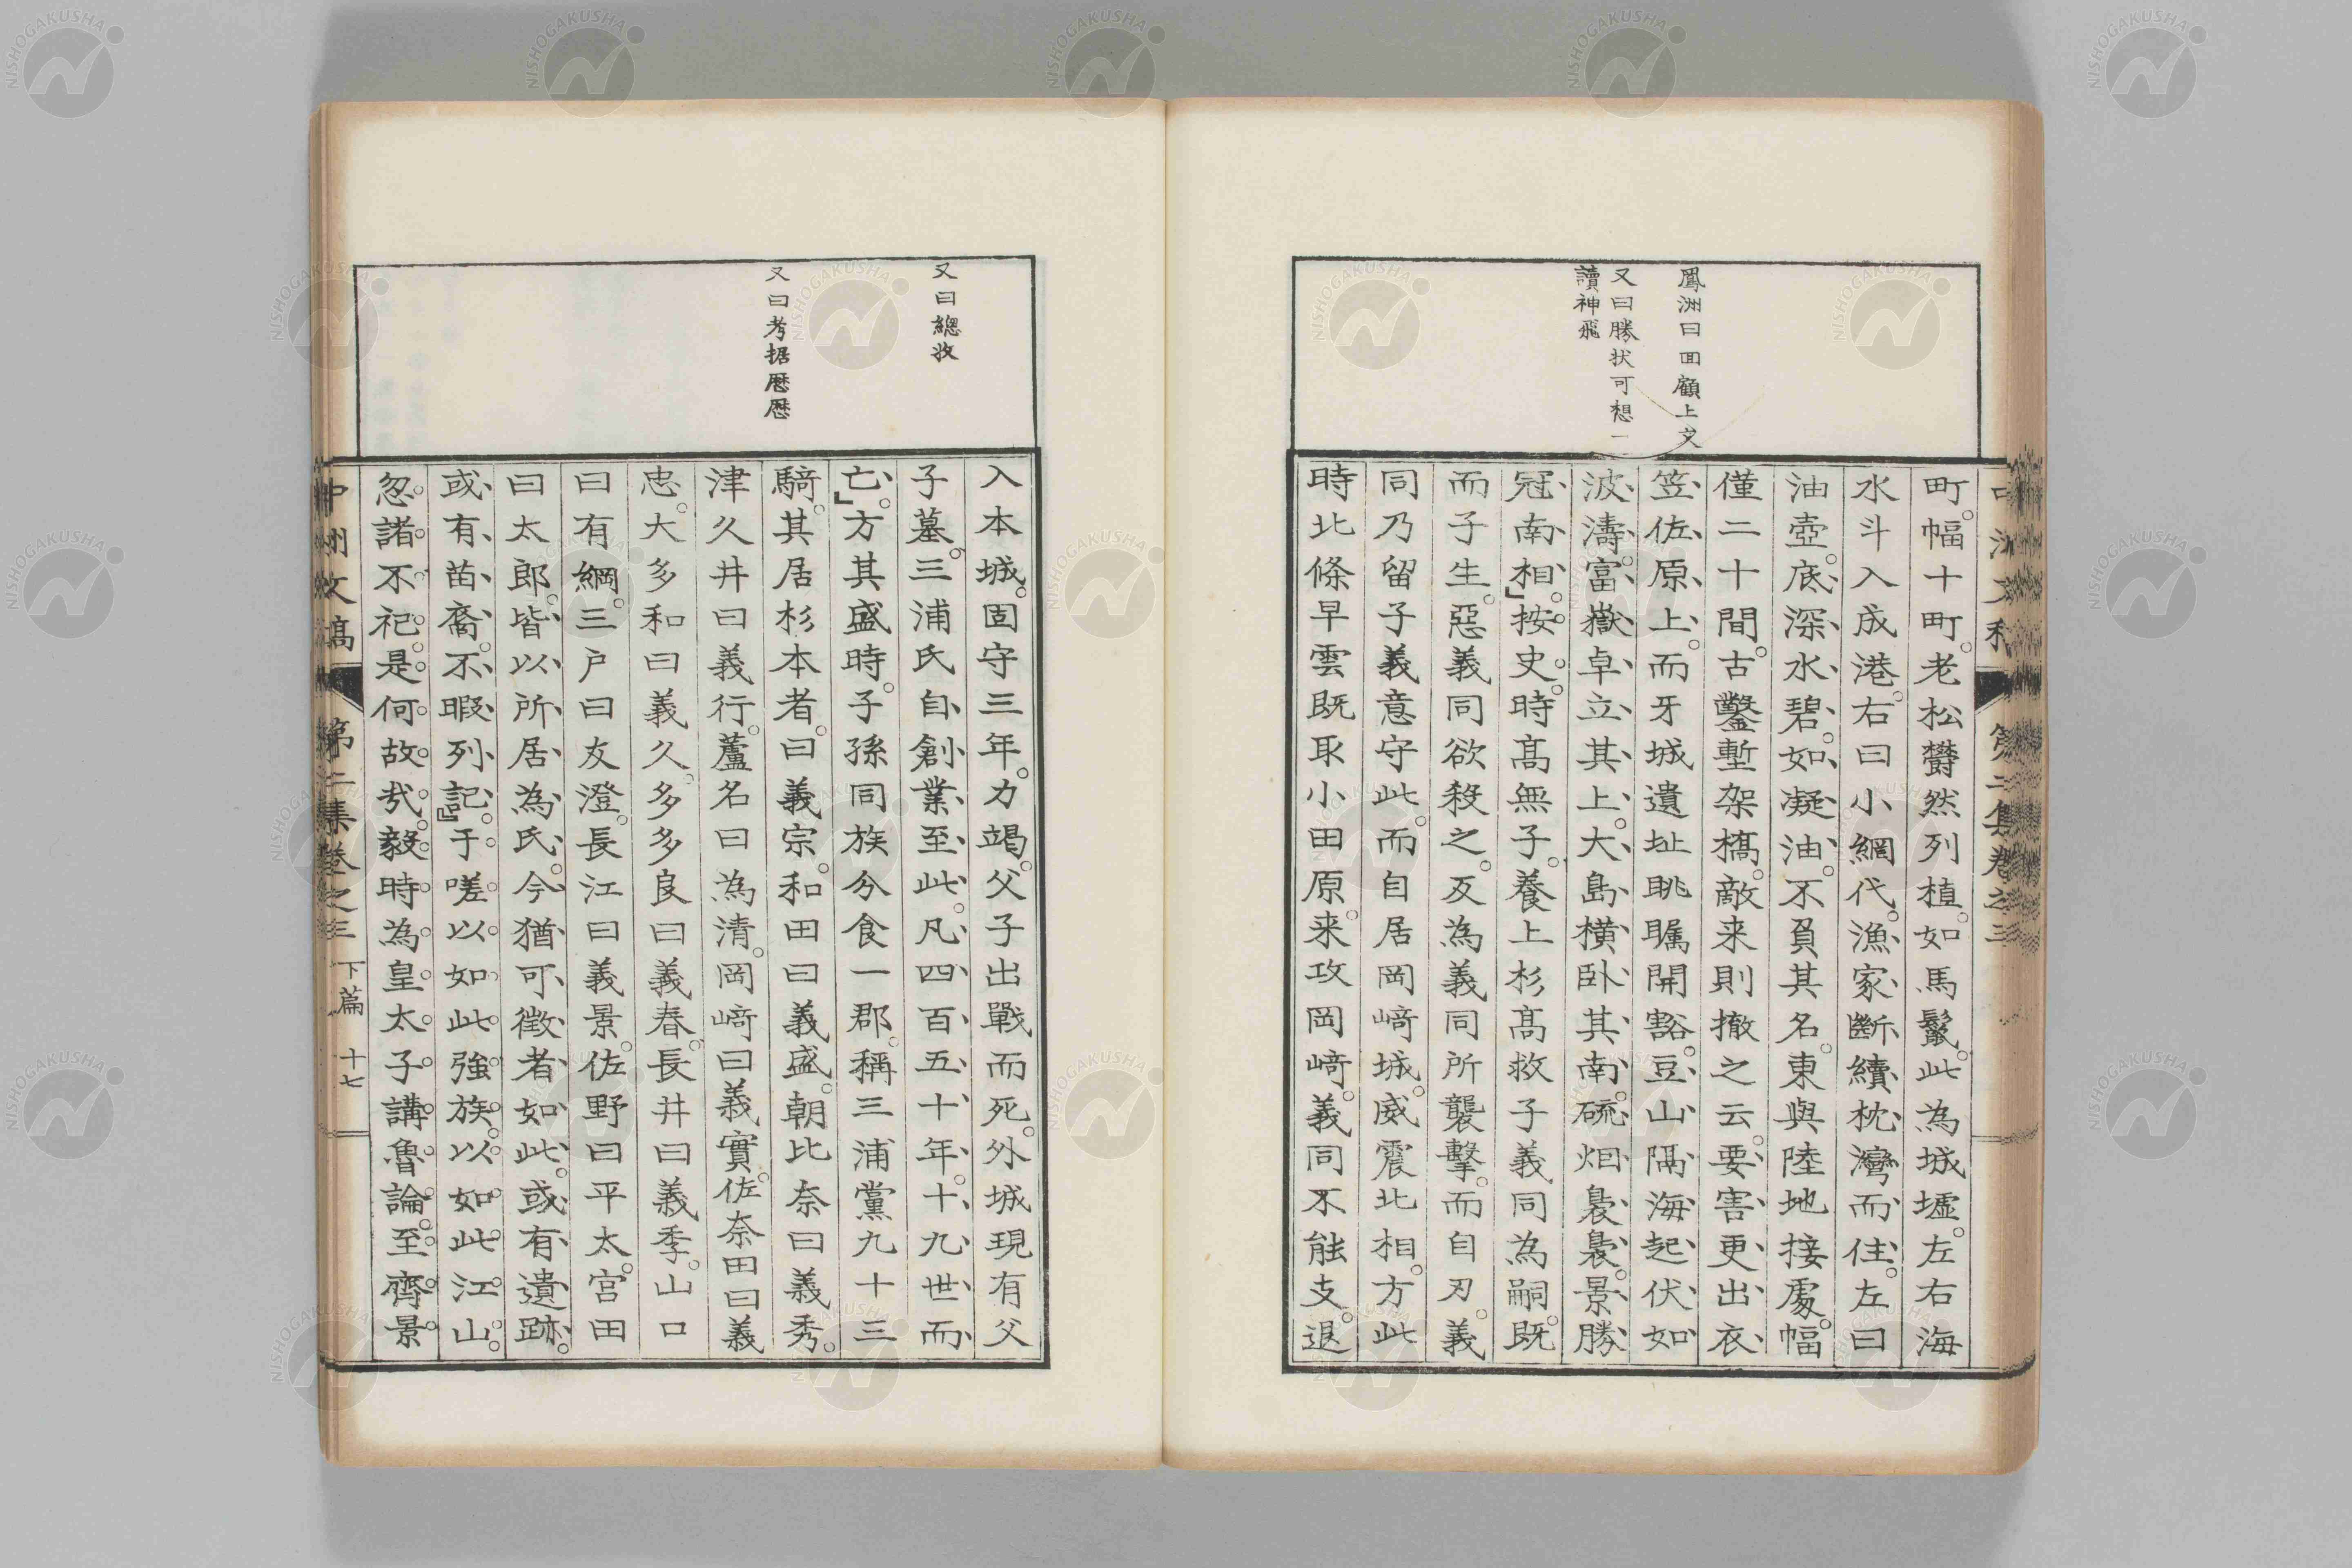 鳳洲曰回顧上文
又曰勝状可想一
讀神飛
町。幅十町。老松欝然列植。如馬鬣。此為城墟。左右海
水斗入成港。右曰小網代。漁家斷續枕灣而住。左曰
油壺。底深水碧。如凝油。不負其名。東與陸地接處。幅
僅二十間。古鑿塹架橋。敵来則撤之云。要害更出衣
笠佐原上。而牙城遺址眺矚開豁。豆山隔海起伏如
波濤。富嶽卓立其上。大島横卧其南。硫烟裊裊。景勝
冠南相。」按史。時高無子。養上杉高救子義同為嗣。既
而子生。惡義同欲殺之。反為義同所襲擊。而自刃。義
同乃留子義意守此。而自居岡﨑城。威震北相。方此
時北條早雲既取小田原。来攻岡﨑。義同不能支。退
又曰總收
又曰考据歷歷
入本城。固守三年。力竭。父子出戰而死。外城現有父
子墓。三浦氏自創業至此。凡四百五十年。十九世而
亡。」方其盛時。子孫同族分食一郡。稱三浦黨九十三
騎。其居杉本者。曰義宗。和田曰義盛。朝比奈曰義秀。
津久井曰義行。蘆名曰為清。岡﨑曰義實。佐奈田曰義
忠。大多和曰義久。多多良曰義春。長井曰義季。山口
曰有綱。三戸曰友澄。長江曰義景。佐野曰平太。宮田
曰太郎。皆以所居為氏。今猶可徴者如此。或有遺跡。
或有苗裔。不暇列記。」于嗟以如此強族。以如此江山。
忽諸不祀。是何故哉。毅時為皇太子講魯論。至齊景
中洲文稿 第二集卷之三 下篇 十七